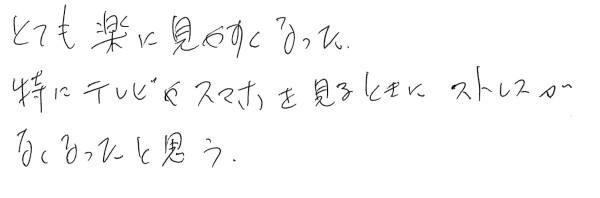 とても楽に見やすくなった.
特にテレビやスマホを見るときに ストレスが
なくなったと思う.